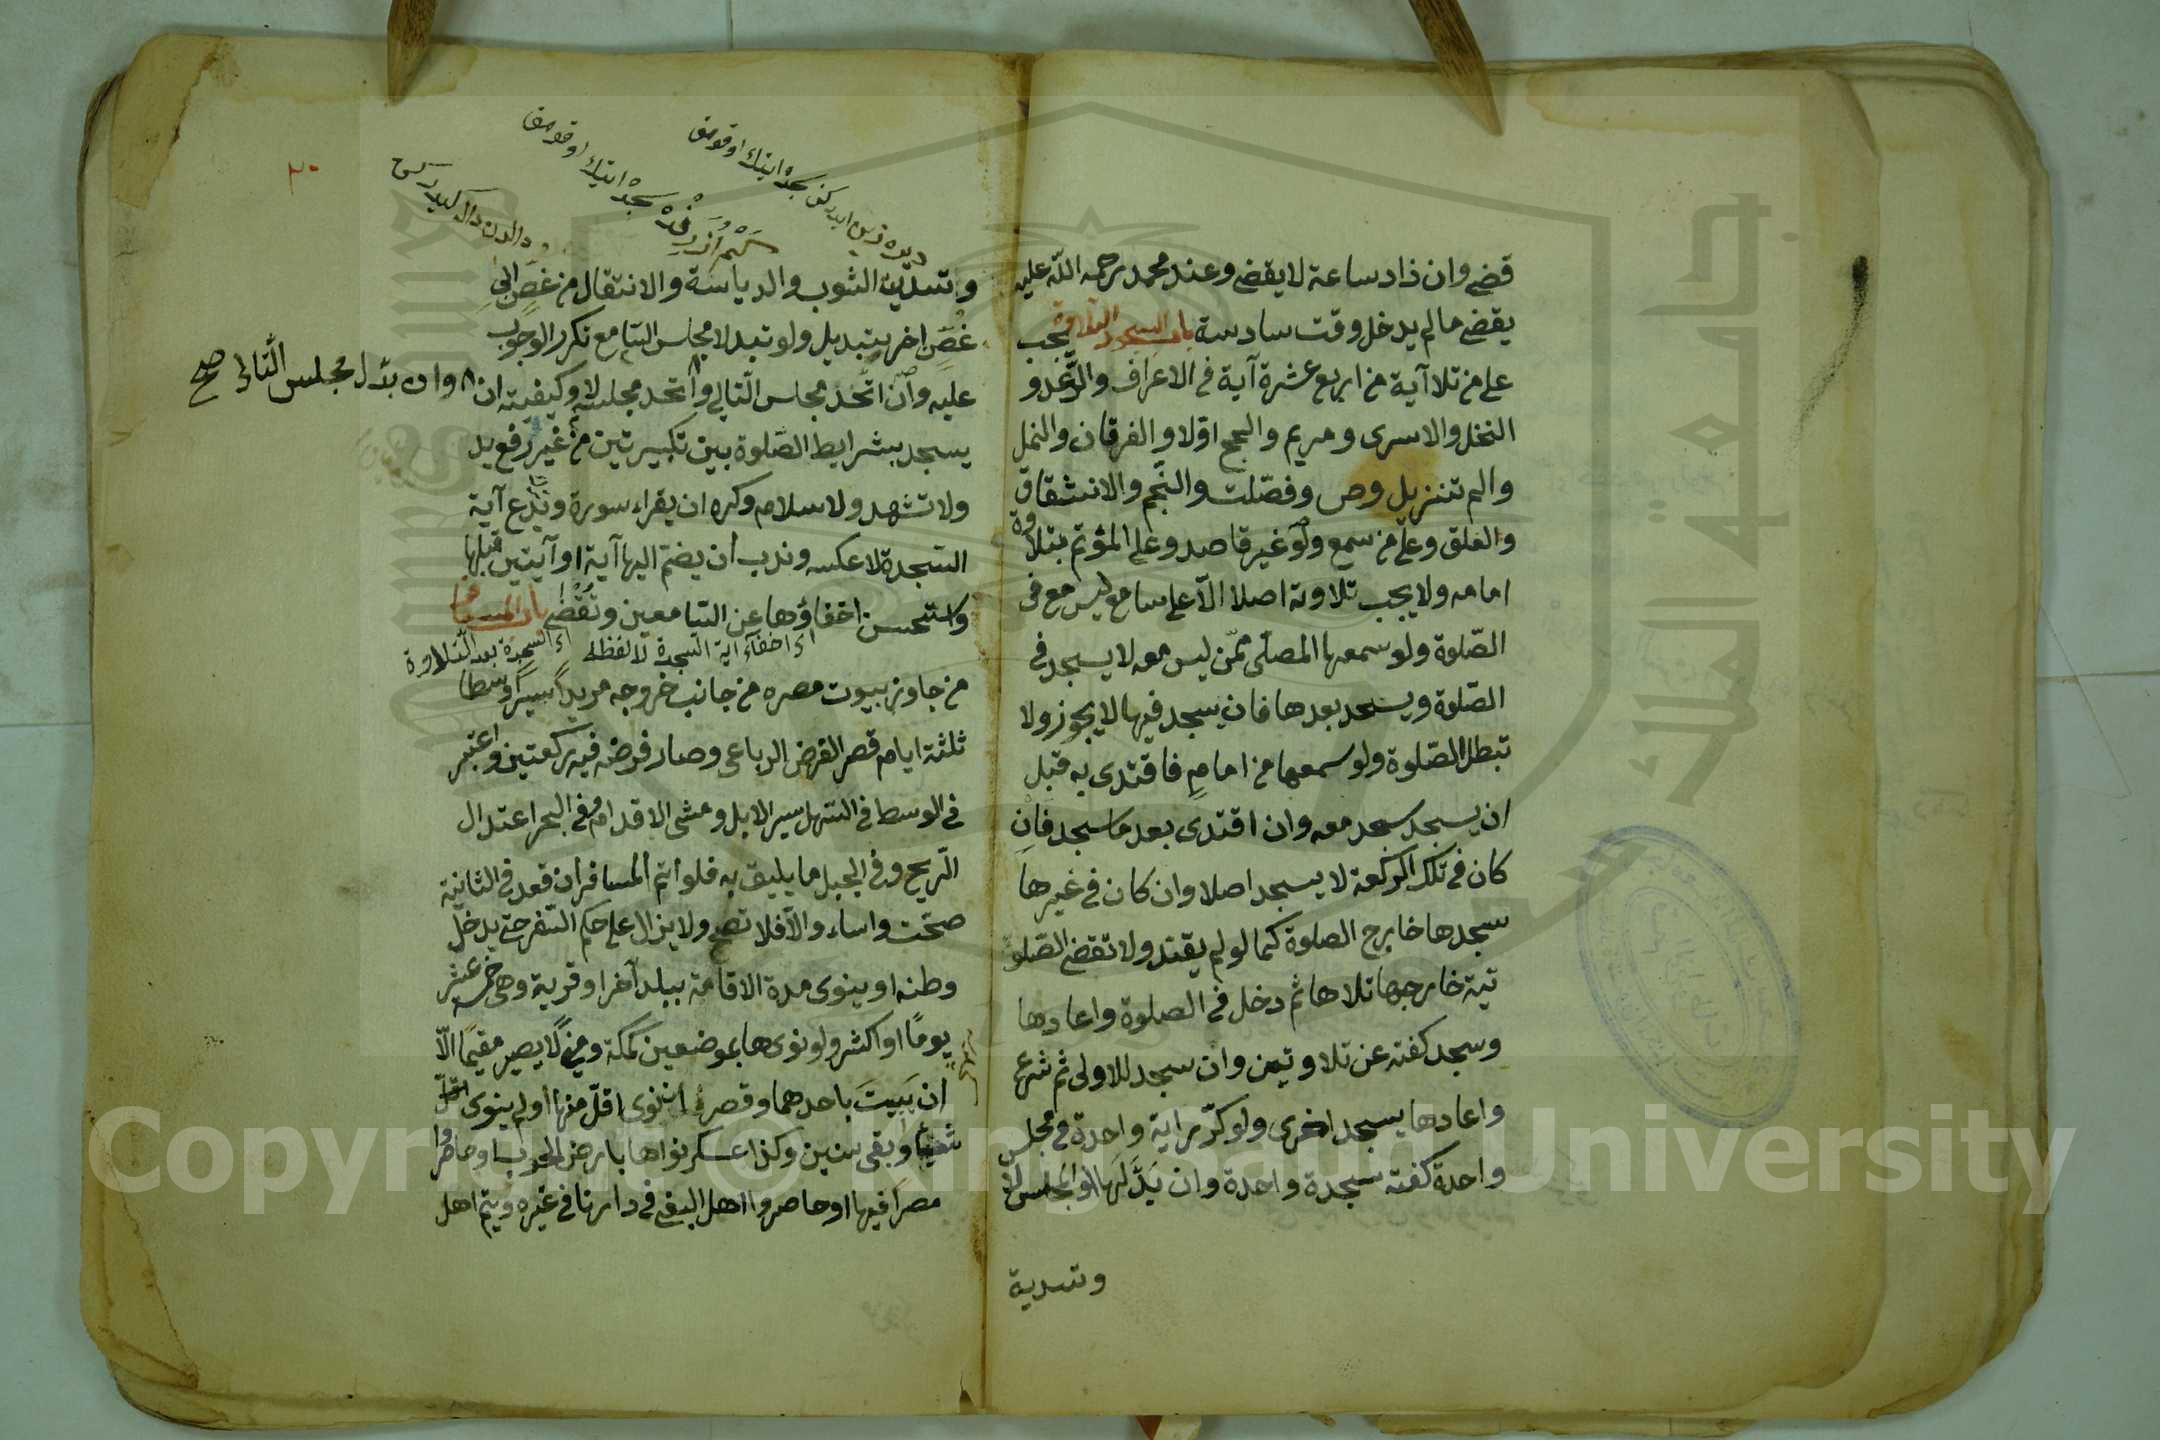 قضى وان زاد ساعة لا يقضى وعند محمد رحمه الله عليه
يقضى مالم يدخل وقت سادسة باب السجود التلاوة يجب
على من تلا آية من اربع عشرة آية فى الاعراف والرعد و
النحل والاسرى ومريم والحج اولا والفرقان والنمل
والم تنزيل وص وفصّلت والنّجم والانشقاق
والعلق وعلى من سمع ولو غير قاصد وعلى المؤتم بتلاوة
امامه ولا يجب تلاوته اصلا الّا على سامع ليس مع فى
الصّلوة ولو سمعها المصلّى ممّن ليس معه لا يسجد فى
الصّلوة ويسجد بعدها فان يسجد فيها لا يجوز ولا
تبطل الصّلوة ولو سمعها من امامٍ فاقتدى به قبل
ان يسجد سجد معه وان اقتدى بعد ما سجد فان
كان فى تلك الركعة لا يسجد اصلا وان كان فى غيرها
سجدها خارج الصلوة كما لو لم يقتد ولا تقضى الصّلو
تية خارجها تلاها ثم دخل فى الصلوة واعادها
وسجد كفته عن تلاوتين وان سجد للاولى ثم شرع
واعادها يسجد اخرى ولو كرّر آية واحدة فى مجلس
واحدة كفته سجدة واحدة وان بدّلها او المجلس لا
وتسدية
٢٠
وتسدية الثوب والدياسة والانتقال من غصن الى
غصن اخر تبديل ولو تبدلا مجلس السّامع تكرر الوجوب
عليه وان اتّحد مجلس التالى واتّحد مجلسه لا وكيفيته ان
وان بدّل مجلس التّالى صح
يسجد بشرايط الصّلوة بين تكبيرتين من غير رفع يد
ولا تشهد ولا سلام وكره ان يقراء سورة ويدع آية
السّجدة لا عكسه وندب ان يضمّ اليها آية او آيتين قبلها
واستحسن اخفاؤها عن السّامعين وتقضى باب المسافر
اى اخفاء آية السّجدة لا لفظه اى السجدة بعد التلاوة
من جاوز بيوت مصره من جانب خروجه مريداً سيراً وسطا
ثلثة ايام قصر الفرض الرباعى وصار فرضه فيه ركعتين واعتبر
فى الوسط فى السّهل سير الابل ومشى الاقدام وفى البحر اعتدال
الرّيح وفى الجبل ما يليق به فلو اتم المسافر ان قعد فى الثانية
صحّت واساء والّا فلا تصح ولا يزال على حكم السّفر حتى يدخل
وطنه او ينوى مدة الاقامة ببلد آخر او قرية وهى خمسة عشر
يومًا او اكثر ولو نوى ها بموضعين كمكة ومنى لا يصير مقيمًا الّا
ان يَبيتَ باحدهما وقصر ان نوى اقلّ منها او لم ينوى
شيئًا وبقى سنين وكذا عسكر نواها بارض الحرب او حاصروا
مصراً فيها او حاصروا اهل البغى فى دارنا فى غيره ويتم اهل
Copyright © King Saud University